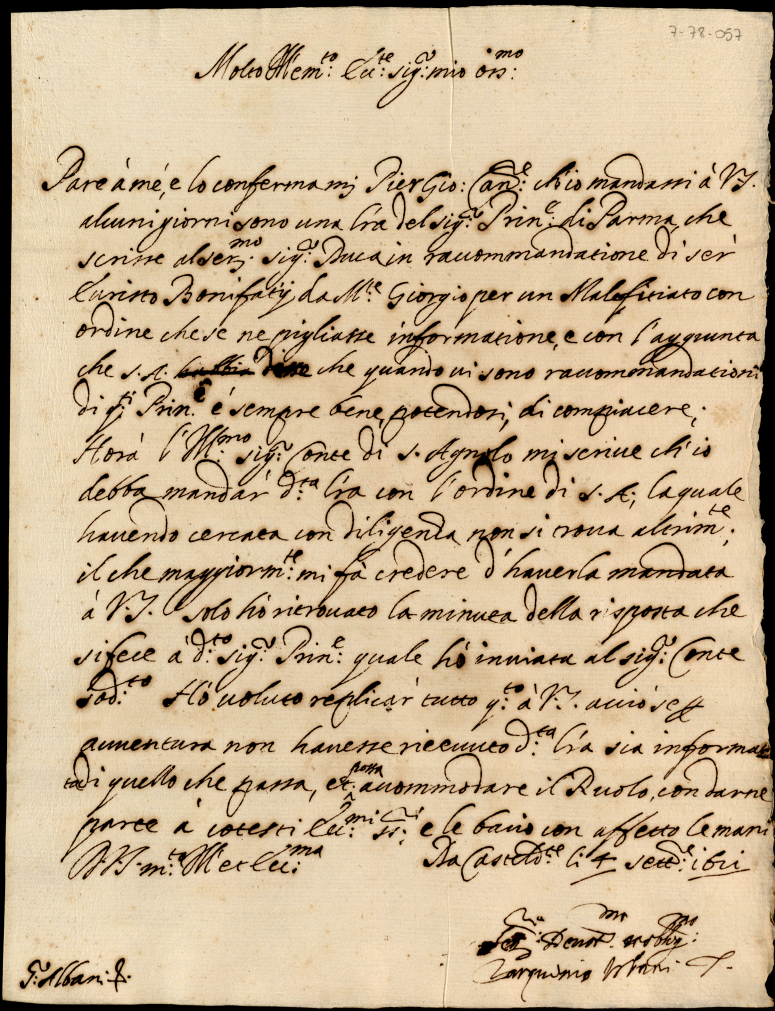 7-78-057
Molto Ill.em.to Ecc.te sig.r mio oss.mo
Pare à mé, e lo conferma mj Pier Gio: Can.e ch'io mandassi à V.S.
alcuni giorni sono una l'ra del sig.r Prin.e di Parma, che
scrisse al ser.mo sig.r Duca in raccommandatione di ser
Evristo Bonifatij da M.te Giorgio per un Malefitiato con
ordine che se ne pigliasse informatione, e con l'aggiunta
che S.A. che quando vi sono raccommandationi
di q.ti Prin.i è sempre bene, potendosi, di compiacere;
Hora l'Ill.mo sig.r Conte di S. Agnolo mi scrive ch'io
debba mandar d.ta l'ra con l'ordine di S.A; la quale
havendo cercata con diligenza non si trova altrim.te;
il che maggiorm.te mi fà credere d'haverla mandata
à V.S. solo hò ritrovato la minuta della risposta che
si fece à d.to sig.r Prin.e quale hò inviata al sig.r Conte
sod.to Hò voluto replicar tutto q.to à V.S. acciò se p
avventura non havesse ricevuto d.ta l'ra sia informa
ta di quello che passa, et possa accommodare il Ruolo, con darne
parte à cotesti Ecc.mi SS.ri e le bacio con affetto le mani
D.V.S. m.to Ill et Ecc.ma Da Casteld.te li 4 sett.e 1621
Ser.re Devot.mo et obbg.mo
Tarquinio Urbani
G. Albani f.